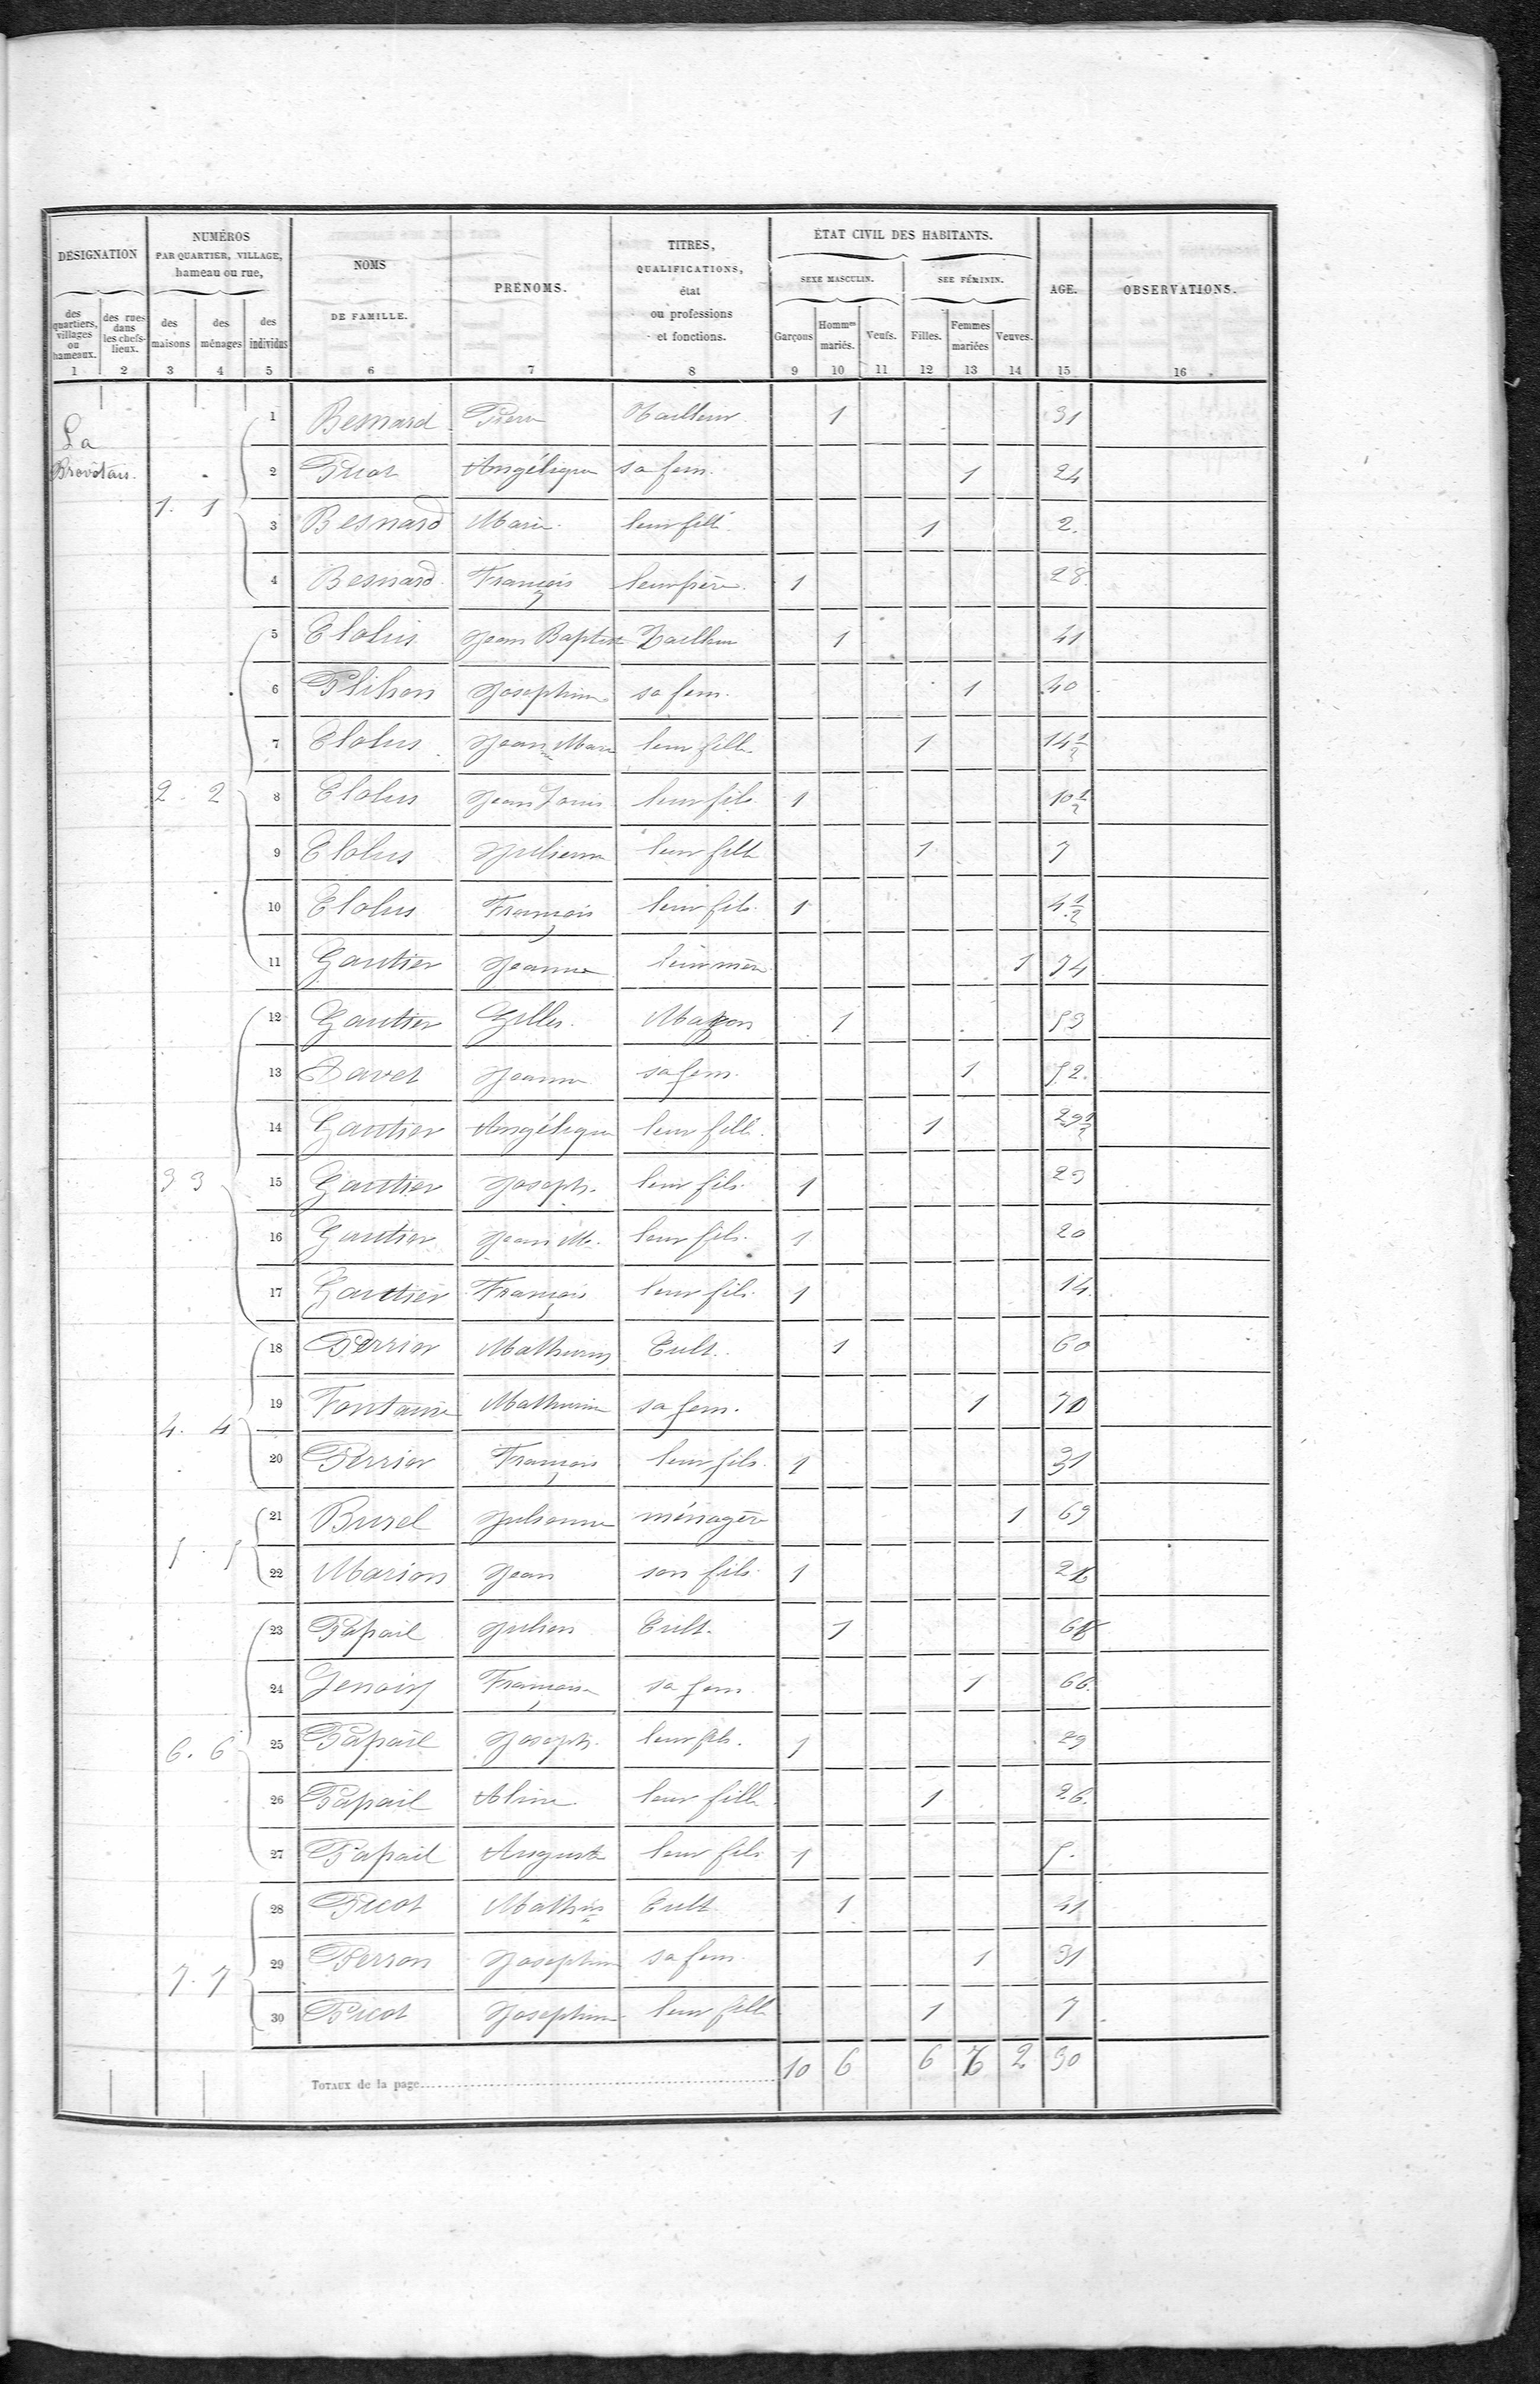 DÉSIGNATION
des quartiers, villages ou hameaux.
des rues dans les chefs-lieux.
NUMÉROS
PAR QUARTIER, VILLAGE,
hameau ou rue,
des maisons
des ménages
des individus
NOMS
DE FAMILLE.
PRÉNOMS.
TITRES,
QUALIFICATIONS,
état
ou professions
et fonctions.
ÉTAT CIVIL DES HABITANTS.
SEXE MASCULIN.
SEE FÉMININ.
Garçons
Hommes mariés.
Veufs.
Filles.
Femmes mariées
Veuves.
AGE.
OBSERVATIONS.
1 2 3 4 5 6 7 8 9 10 11 12 13 14 15 16
La
1. 1
1 Besnard Pierre Tailleur 1 31
2 Angélique sa fem. 1 24
3 Besnard Marie leur fille 1 2.
4 Besnard François leur frère 1 28.
2. 2
5 Elolus Jean Baptiste Tailleur 1 41
6 Plihon Josephine sa fem. 1 40
7 Elolus Jeanne Marie leur fille 1 14 1/2
8 Elolus Jean Louis leur fils 1 10 1/2
9 Elolus Julienne leur fille 1 7
10 Elolus François leur fils 1 4 1/2
11 Gautier Jeanne leur mère 1 74
3 3
12 Gautier Gilles. Maçon 1 53
13 Davet Jeanne sa fem. 1 52.
14 Gautier Angélique leur fille. 1
15 Gautier Joseph. leur fils. 1 23
16 Gautier Jean M. leur fils. 1 20
17 Gautier François leur fils. 1 14.
4. 4
18 Perrier Mathurin Cult. 1 60
19 Fontaine Mathurine sa fem. 1 70
20 Perrier François leur fils. 1 31
5. 5
21 Burel Julienne ménagère 1 69
22 Marion Jean son fils. 1
6. 6
23 Papail Julien Cult. 1
24 Françoise sa fem 1 66.
25 Papail Joseph. leur fils. 1 29
26 Papail Aline leur fille 1 26.
27 Papail Auguste leur fils 1 5.
7. 7
28 Picot Mathin Cult 1 41
29 Perron Josephine sa fem. 1 31
30 Picot Josephine leur fille 1 7
TOTAUX de la page 10 6 6 6 2 30